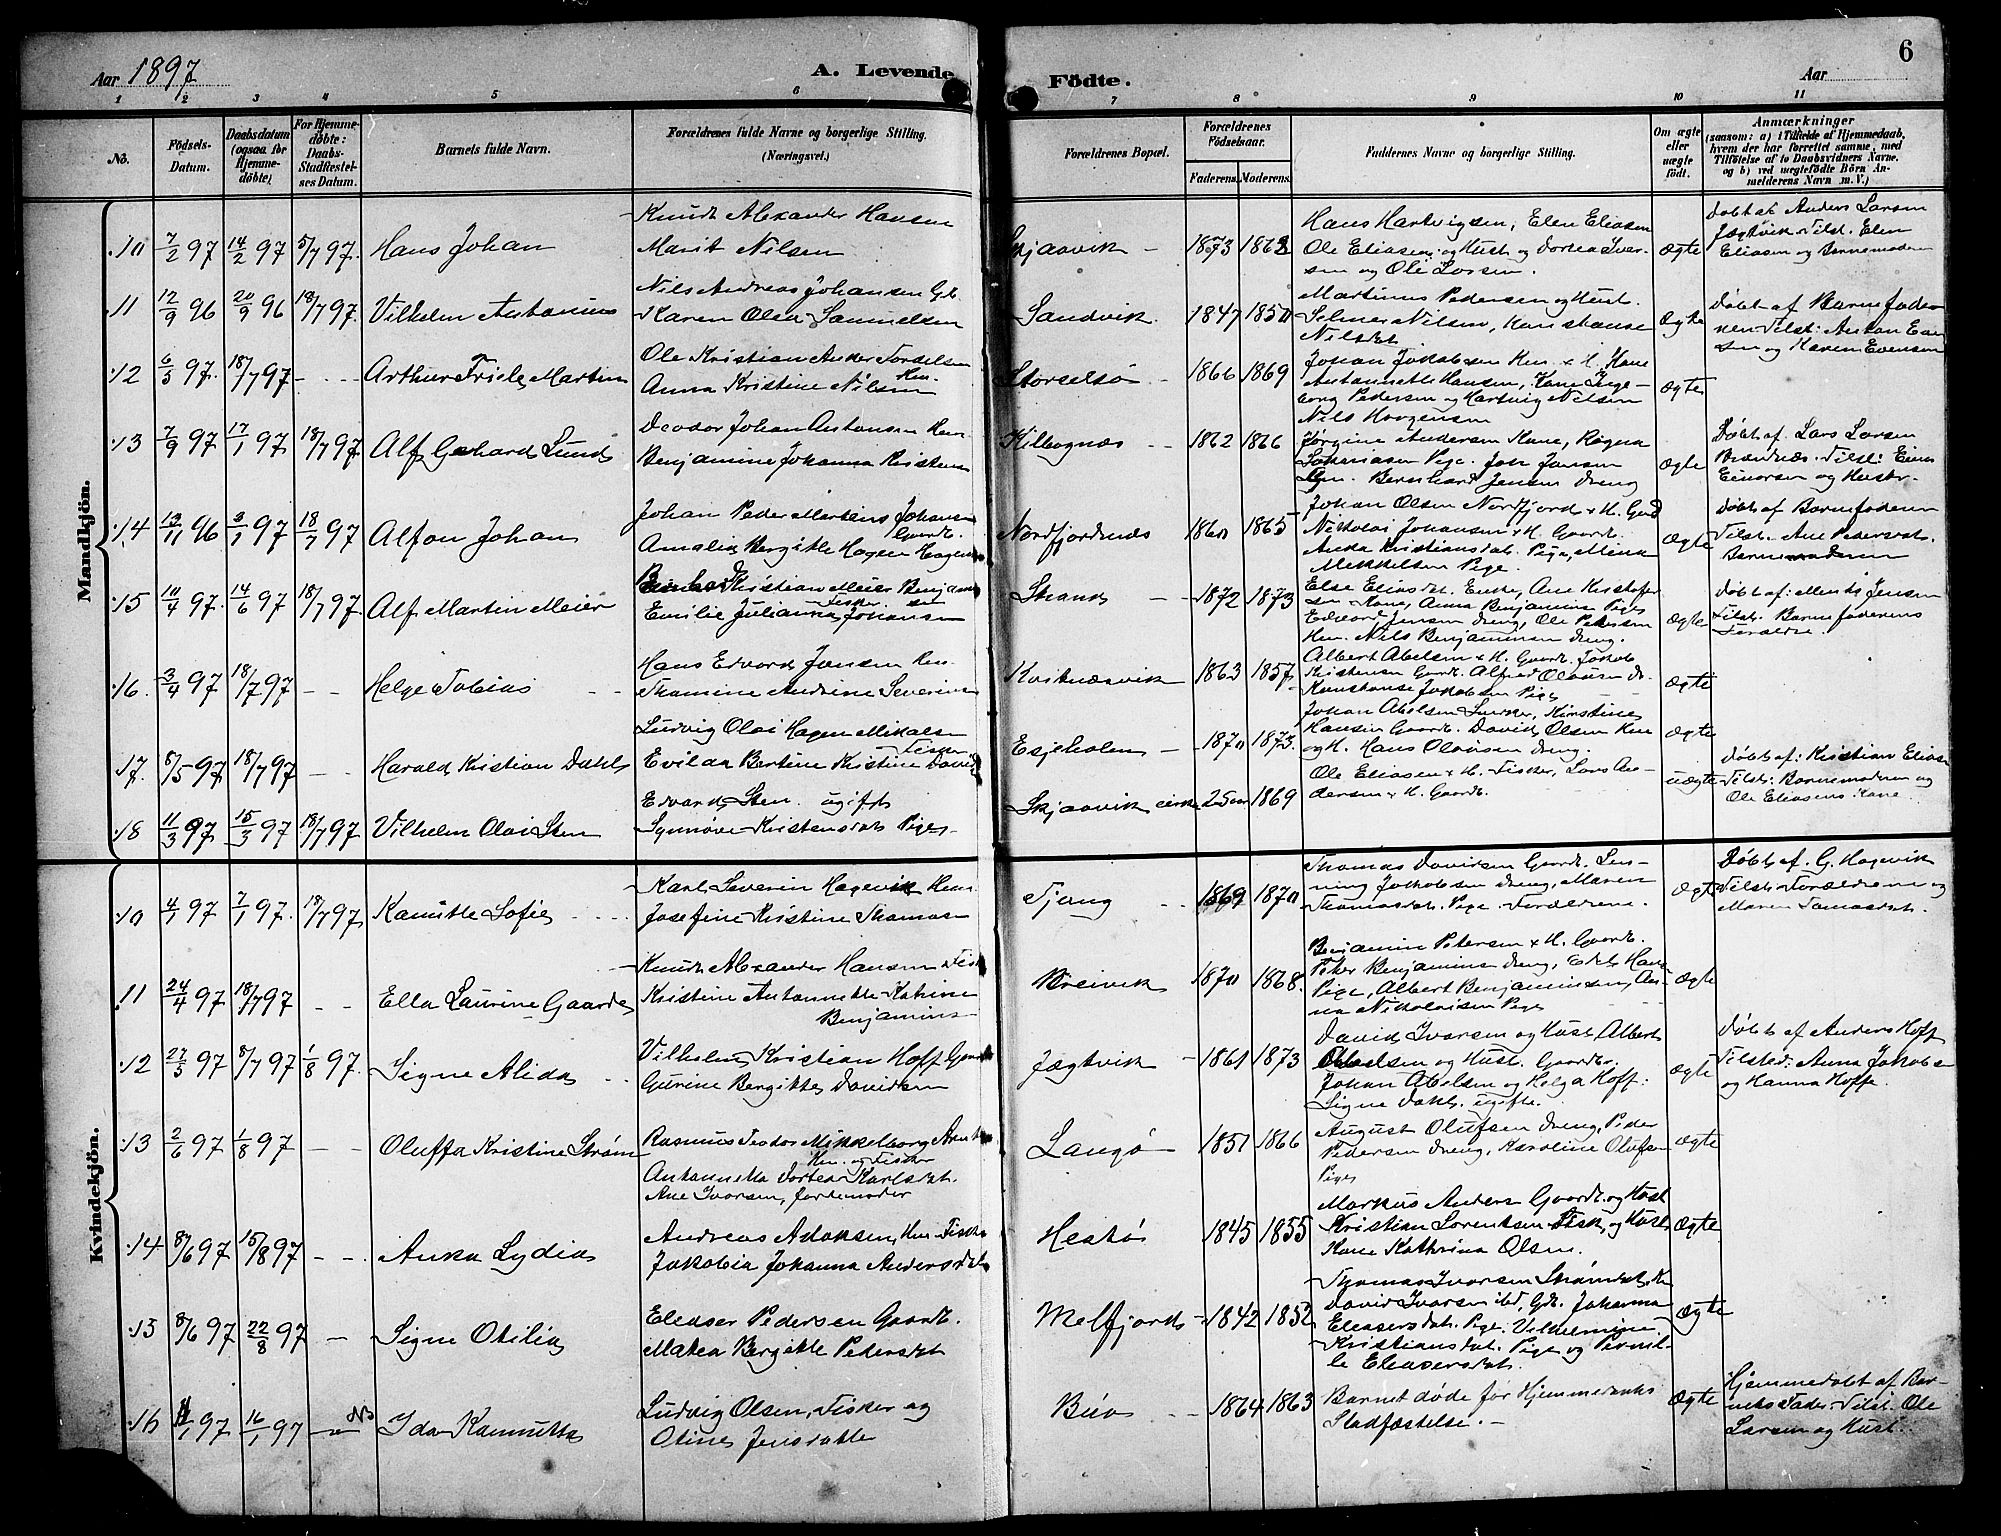 6
Aar 1897
A. Levende Födte.
Aar
1 2 3 4 5 6 7 8 9 10 11
No.
Födsels-Datum.
Daabsdatum (ogsaa for Hjemme-döbte)
For Hjemme-döbte: Daabs-Stadfæstel-ses Datum.
Barnets fulde Navn.
Forældrenes fulde Navne og borgerlige Stilling.
(Næringsvei.)
Forældrenes Bopæl.
Forældrenes Födselsaar.
Faderens. Moderens.
Faddernes Navne og borgerlige Stilling.
Om ægte eller uægte födt.
Anmærkninger
(saasom: a) i Tilfælde af Hjemmedaab,
hvem der har forrettet samme, med
Tilföielse af to Daabsvidners Navne.
og b) ved uægtefödte Börn An-
melderens Navn m. V.)
Mandkjön.
10 7/2 97 14/2 97 5/7 97. Hans Johan
Knudt Alexander Hansen
Marit Nilsen
Skjaavik - 1873 1862
Hans Hartvigsen, Elen Eliasen
Ole Eliasen og Hust og Dortea Ivar-
sen og Ole Larsen.
Ægte
Døbt af Anders Larsen
Jægtvik. Tilst. Elen
Eliasen og Barnemoderen
11 12/9 96 20/9 96 18/7 97. Vilhelm Antonius
Nils Andreas Johansen Gb.
Karen Olea Samuelsen
Sandvik. 1847 1850
Martinus Pedersen og Hust.
Selmer Nilsen, Konstanse
Nilsdat
Ægte
Døbt af Barnefaderen
Tilst: Anton Even-
sen og Maren Evensen
12 6/3 97. 18/7 97 - - - Arthur Friele Martin
Ole Kristian Ander Tordelsen
Anna Kristine Nilsen
Storselsø - 1866 1869
Johan Jakobsen Hen. & H. Kone
Antonnette Hansen, Kone Inge-
borg Pedersen og Hartvig Nilsen
Nils Horgensen
Ægte
13 7/9 97 17/1 97 18/7 97 Alf Gerhard Lund
Deodor Johan Antonsen
Benjamine Johanna Kristens
Kilbognæs - 1862 1866
Jørgine Andersen Kone, Ragna
Pige. Joh Jansen
Bernhard Jensen Dreng
Ægte
Døbt af. Lars Larsen
Tilst: Einar
Einarsen og Hustr.
14 13/11 96 3/1 97 18/7 97 Alfon Johan
Johan Peder Martens Johansen
Gaardb.
Amalia Bergitte Hagen
Nordfjordnæs 1860 1865
Johan Olsen Nordfjord & H. Gaard
Nikolai Johansen & H. Gaardb.
Anda Kristiansdat. Pige, Mina
Mikkelsen Pige.
Ægte
Døbt af Barnefaderen
Tilst. Ane Pedersdat.
Barnemoderen
15 10/4 97. 14/6 97 18/7 97. Alf Martin Meier
Kristian Meier Benjamin
sen Fisker
Emilie Julianna Johansen
Strand - - 1872 1873
Else Eliasdat. Enke, Ane Kristofer
sen Kone, Anna Benjamine Pige
Edvard Jensen Dreng, Ole Petersen
Hen. Nils Benjaminsen Dreng.
Ægte
Døbt af: Jensen
Tilst. Barnefaderens
Forældre.
16. 3/4 97 18/7 97 - - Helge Tobias - -
Hans Edvard Jansen
Thomine Andrine Severine
1863 1857
Albert Abelsen & H. Gaardb. Jakob
Kristensen Gaardb. Alfred Olausen do.
Konstanse Jakobsen Pige
Ægte
17. 8/5 97 18/7 97 - - Harald Kristian Dahl
Ludvig Olai Hagen Mikalsen
Fisker
Evilda Bertine Kristine David
Esjeholmen - 1870 1873.
Johan Abelsen, Kirstine
Hansen Gaardb. David Olsen
og H. Hans Olausen Dreng.
Ægte
18 11/3 97 15/3 97 18/7 97. Vilhelm Olai Sten
Edvard Sten. ugift
Synnøve Kristensdat Pige -
Skjaavik cirka 25 aar 1869
Ole Eliasen & H. Fisker, Lars An-
dersen & H. Gaardb.
uægte
Døbt af: Kristian Eliasen
Tilst: Barnemoderen og
Ole Eliasens Kone
Kvindekjön.
10 4/1 97 7/1 97. 18/7 97 Kamitte Sofie - - -
Karl Severin Hagevik
Josefine Kristine Thomas
Tjong - - 1869 1870
Thomas Davidsen Gaardb. Len-
ning Jakobsen Dreng, Maren
Thomasdat. Pige. Forældrene.
Ægte
Døbt af. G. Hagevik
Tilst. Forældrene og
Maren Tomasdat.
11 24/4 97 18/7 97 - - Ella Laurine Gaarde
Knudt Alexander Hansen Fisk
Kristine Antonnette Katrine
Benjamins-
Breivik 1870 1868.
Benjamin Petersen & H. Gaardb.
Peter Benjaminsen Dreng, Edel Han
Pige, Albert Benjaminsen, An-
na Nikolaisen Pige
Ægte
12 27/3 97 8/7 97 1/8 97. Signe Alida - -
Vilhelm Kristian Hoff
Gurine Bergitte Davidsen
Jægtvik - 1861 1873
David Ivarsen og Hust Albert
Abelsen og Hust. Gaardbr.
Johan Abelsen og Helga Hoff:
Signe Dahl. ugifte.
Ægte
Døbt af Anders Hoff
Tilsted: Anna Jakobsen
og Hanna Hoffe.
13 2/6 97 1/8 97 - - Oluffa Kristine Strøm
Rasmus Teodor Mikkelborg
Hen. og Fisker
Antonnetta Dortea Karlsdat.
Ane Ivarsen, Jordemoder
Langø 1851 1866
August Olufsen Dreng, Peder
Pedersen Dreng, Karoline Olufsen
Pige
Ægte
14 8/6 97 15/8 97 - - Anna Lydia
Andreas Adolfsen, Fisk
Jakobia Johanna Andersdat
Hestø 1845 1855
Markus Anders Gaardb. og Hust
Kristian Lorentsen Fisk, og Hust,
Kone Kathrina Olsen.
Ægte
15 8/6 97 22/8 97 - Signe Otilia
Eleaser Pedersen Gaardb.
Matea Bergitte Pedersdat
Melfjord 1842 1852
Thomas Ivarsen Strømdal,
David Ivarsen ibd, Gdb. Johanna
Eleasersdat. Pige. Vilhelmine
Kristiansdat. Pige og Pernil-
le Eleasersdat.
Ægte
16 11/1 97 16/1 97 - NB Ida Kamitta
Ludvig Olsen, Fisker og
Otine Jensdatte
- - 1864 1863
Barnet døde før Hjemmedaabs
Stadfæstelse. -
Ægte
Hjemmedøbt af Bar-
nets Fader. Tilst. Ole
Larsen og Hust.